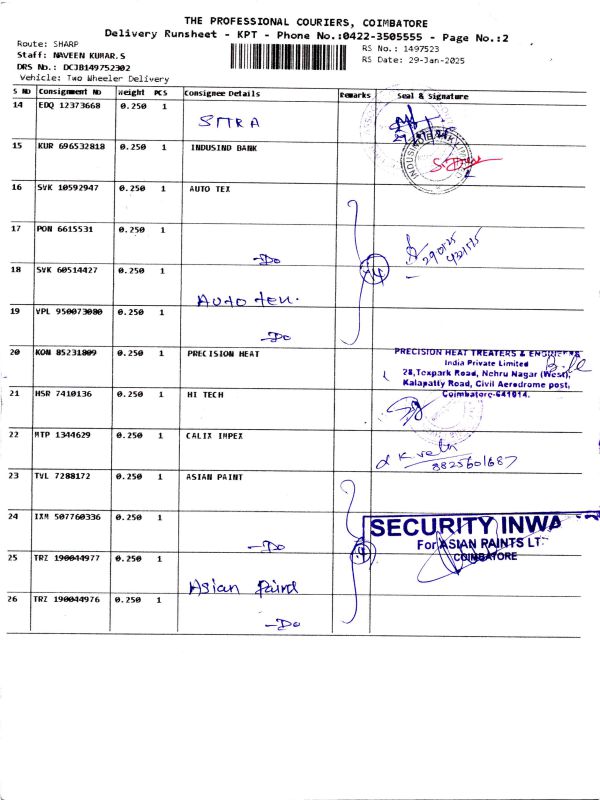 THE PROFESSIONAL COURIERS, COIMBATORE
Delivery Runsheet - KPT - Phone No.:0422-3505555 - Page No.:2
Route: SHARP
Staff: NAVEEN KUMAR.S
DRS No.: DCJB149752302
Vehicle: Two Wheeler Delivery
RS No.: 1497523
RS Date: 29-Jan-2025
S No Consignment No Weight PCS Consignee Details Remarks Seal & Signature
14 EDQ 12373668 0.250 1 SITRA
15 KUR 696532818 0.250 1 INDUSIND BANK
16 SVK 10592947 0.250 1 AUTO TEX
17 PON 6615531 0.250 1 -Do
18 SVK 60514427 0.250 1 Auto ten.
19 VPL 950073080 0.250 1 -Do
20 KON 85231809 0.250 1 PRECISION HEAT
PRECISION HEAT TREATERS & ENGINEERS
India Private Limited
28,Texpark Road, Nehru Nagar (West),
Kalapatty Road, Civil Aerodrome post,
Coimbatore-641014.
21 HSR 7410136 0.250 1 HI TECH
22 MTP 1344629 0.250 1 CALIX IMPEX
8825601687
23 TVL 7288172 0.250 1 ASIAN PAINT
24 IXM 507760336 0.250 1 -Do
SECURITY INWA
For ASIAN PAINTS LT
COIMBATORE
25 TRZ 190044977 0.250 1 Asian Paind
26 TRZ 190044976 0.250 1 -Do